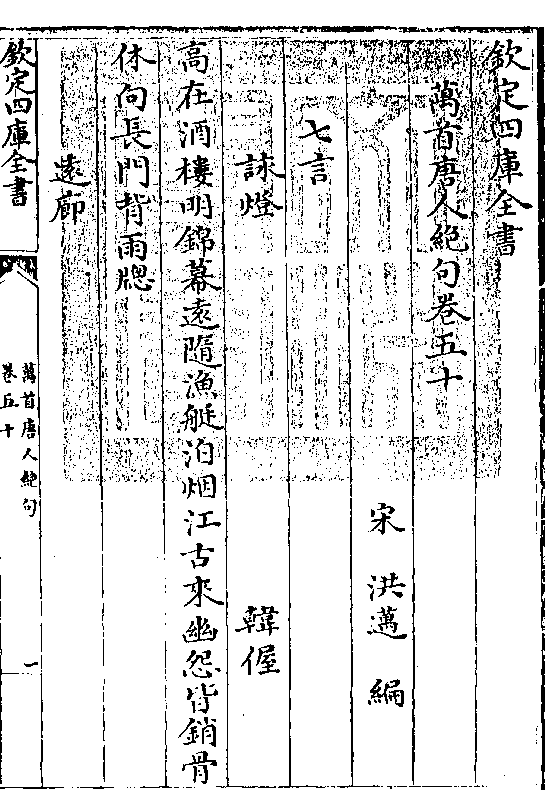 欽定四庫全書
萬首唐人絶句卷五十
宋 洪邁 編
七言
詠燈 韓偓
高在酒樓明錦幕遠隨漁艇泊烟江古來幽怨皆銷骨
休向長門背雨牎
遶廊
欽定四庫全書
萬首唐人絶句
卷五十
一